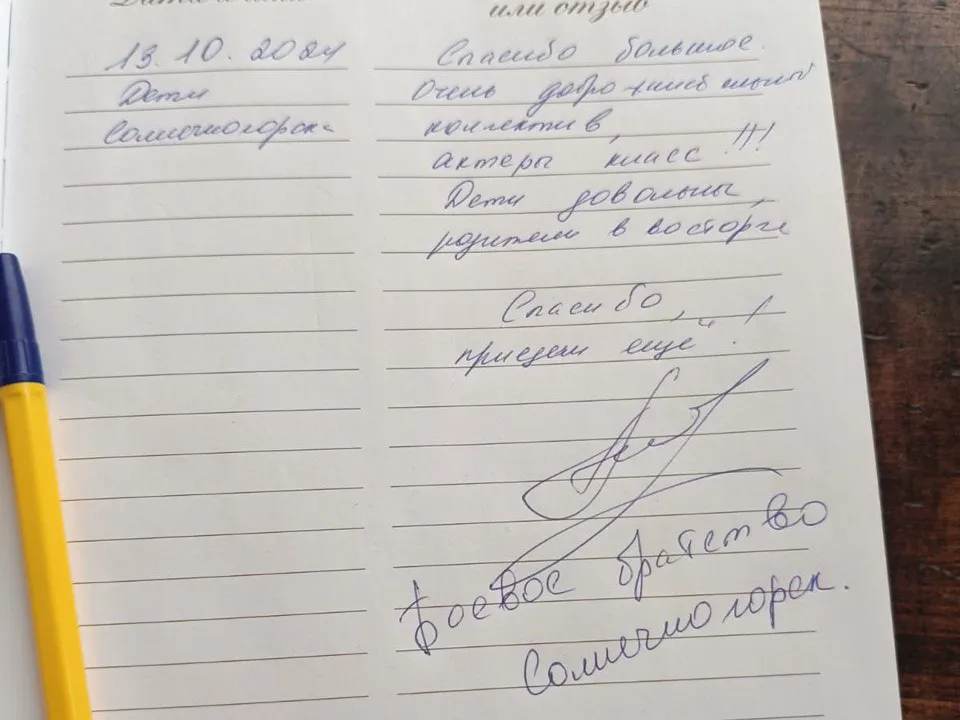 или отзыв
13.10.2024
Дети
Солнечногорска
Спасибо большое.
Очень доброжелательный
коллектив,
актеры класс!!!
Дети довольны,
родители в восторге
Спасибо,
приедем ещё!
Боевое братство
Солнечногорск.